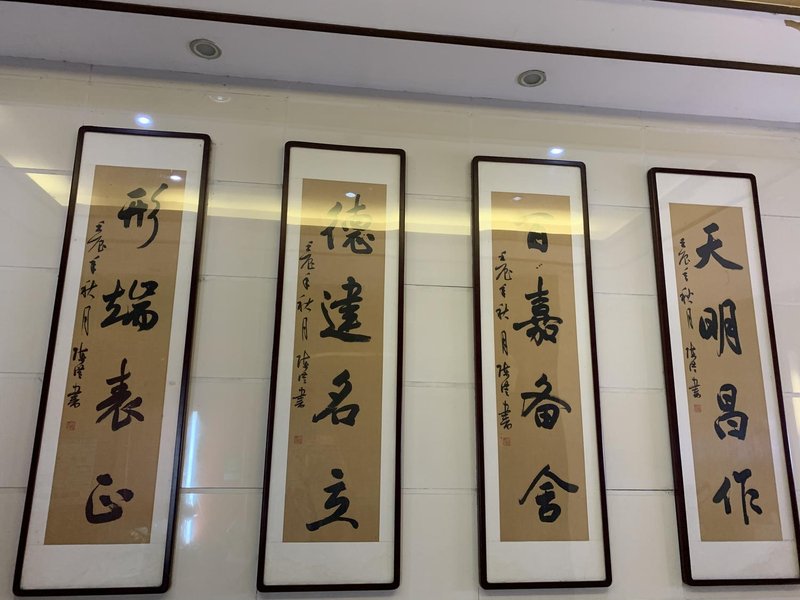 天明昌作
壬辰年秋月
书
百嘉备舍
壬辰年秋月
书
德建名立
壬辰年秋月
书
形端表正
壬辰年秋月
书